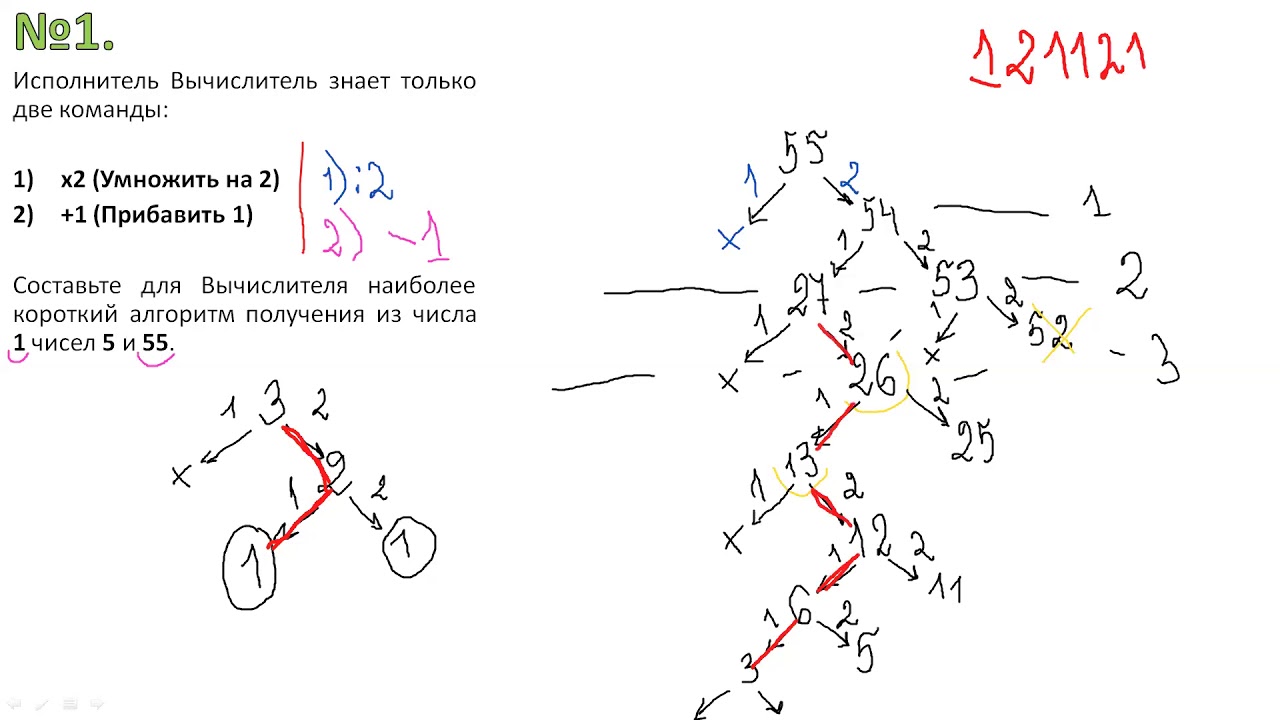 №1.
Исполнитель Вычислитель знает только
две команды:
1) x2 (Умножить на 2)
2) +1 (Прибавить 1)
1) :2
2) -1
Составьте для Вычислителя наиболее
короткий алгоритм получения из числа
1 чисел 5 и 55.
1 3 2
x 2
1 2
1 1
121121
55
1 2
x 54 1
1 2
27 53 2
1 2 1 2
x 26 x 52 - 3
1 2
13 25
1 2
x 12
1 2
6 11
1 2
3 5